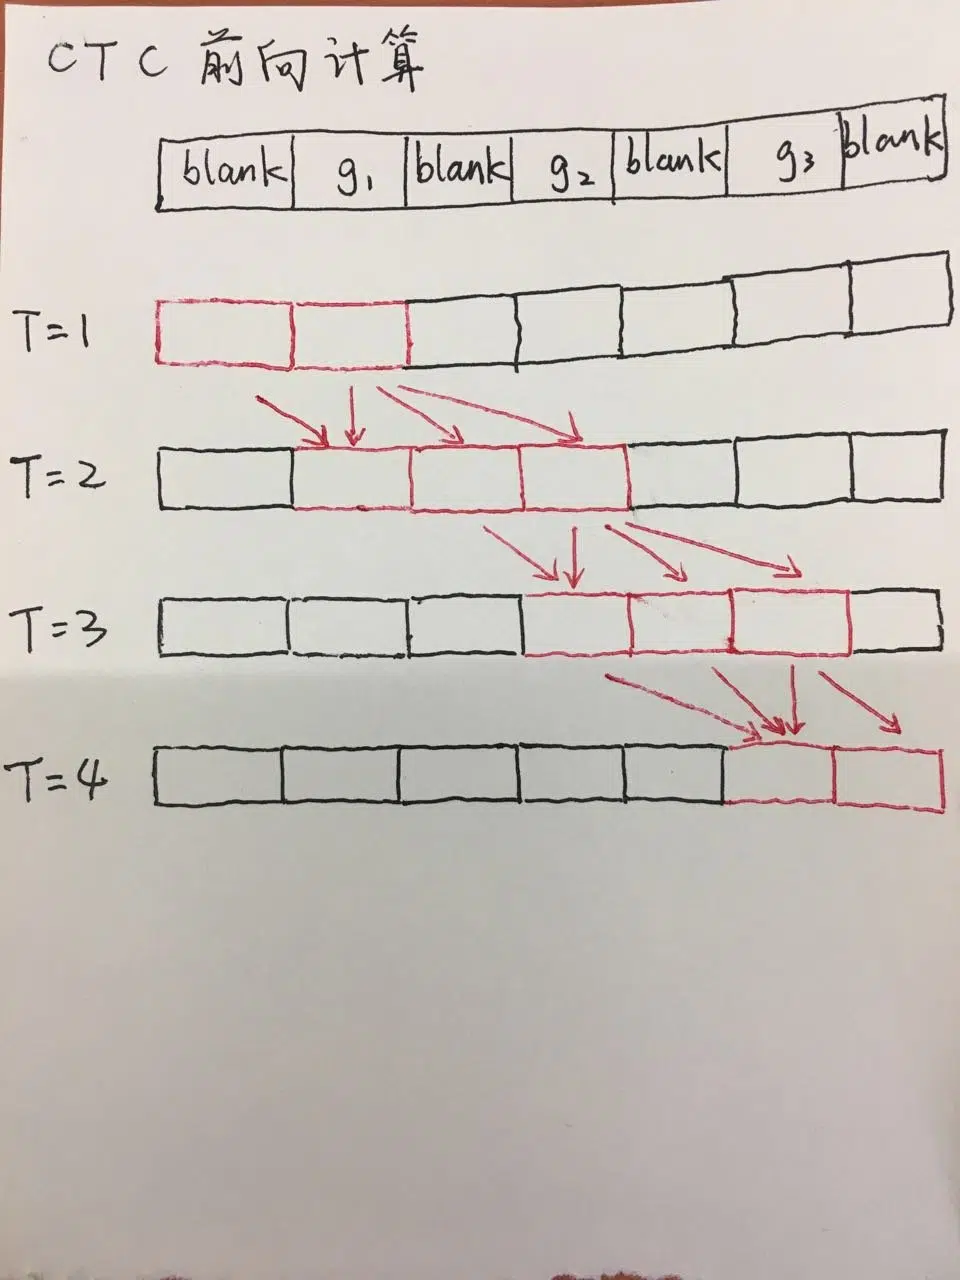 CTC 前向计算
blank g₁ blank g₂ blank g₃ blank
T=1
T=2
T=3
T=4